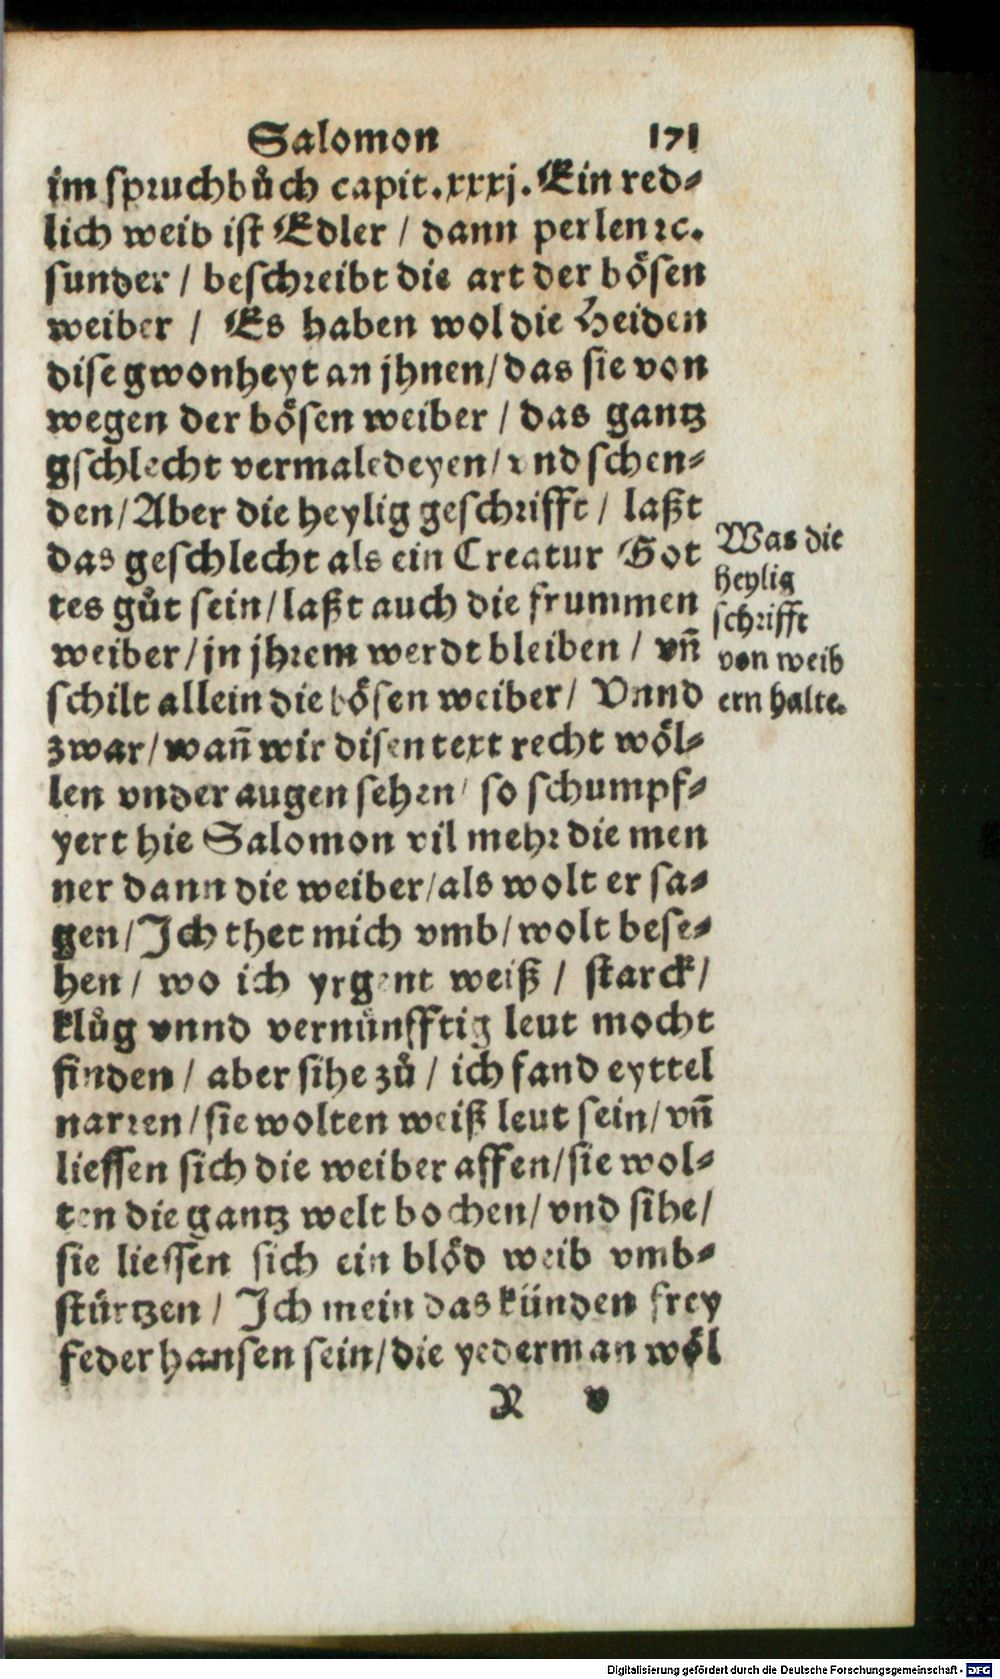 Salomon 171
im spruchbůch capit.xxxj. Ein red⸗
lich weib ist Edler / dann perlen ꝛc.
sunder / beschreibt die art der bösen
weiber / Es haben wol die Heiden
dise gwonheyt an jhnen/das sie von
wegen der bösen weiber / das gantz
gschlecht vermaledeyen/ vnd schen⸗
den/Aber die heylig geschrifft / laßt
das geschlecht als ein Creatur Got
tes gůt sein/laßt auch die frummen
weiber/jn jhrem werdt bleiben / vñ
schilt allein die bösen weiber/ Vnnd
zwar/wañ wir disen text recht wöl⸗
len vnder augen sehen/ so schumpf⸗
yert hie Salomon vil mehr die men
ner dann die weiber/als wolt er sa⸗
gen/Ich thet mich vmb/wolt bese⸗
hen / wo ich yrgent weiß / starck/
klůg vnnd vernünfftig leut mocht
finden / aber sihe zů / ich fand eyttel
narren/sie wolten weiß leut sein/vñ
liessen sich die weiber affen/sie wol⸗
ten die gantz welt bochen/vnd sihe/
sie liessen sich ein blöd weib vmb⸗
stürtzen / Ich mein das künden frey
federhansen sein/die yederman wöl
R v
Was die
heylig
schrifft
von weib
ern halte.
Digitalisierung gefördert durch die Deutsche Forschungsgemeinschaft - DFG